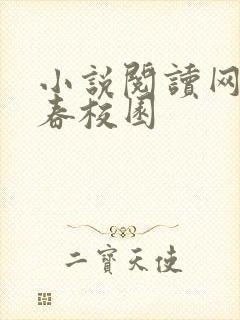 小説閱讀网
春校園
二寳天使